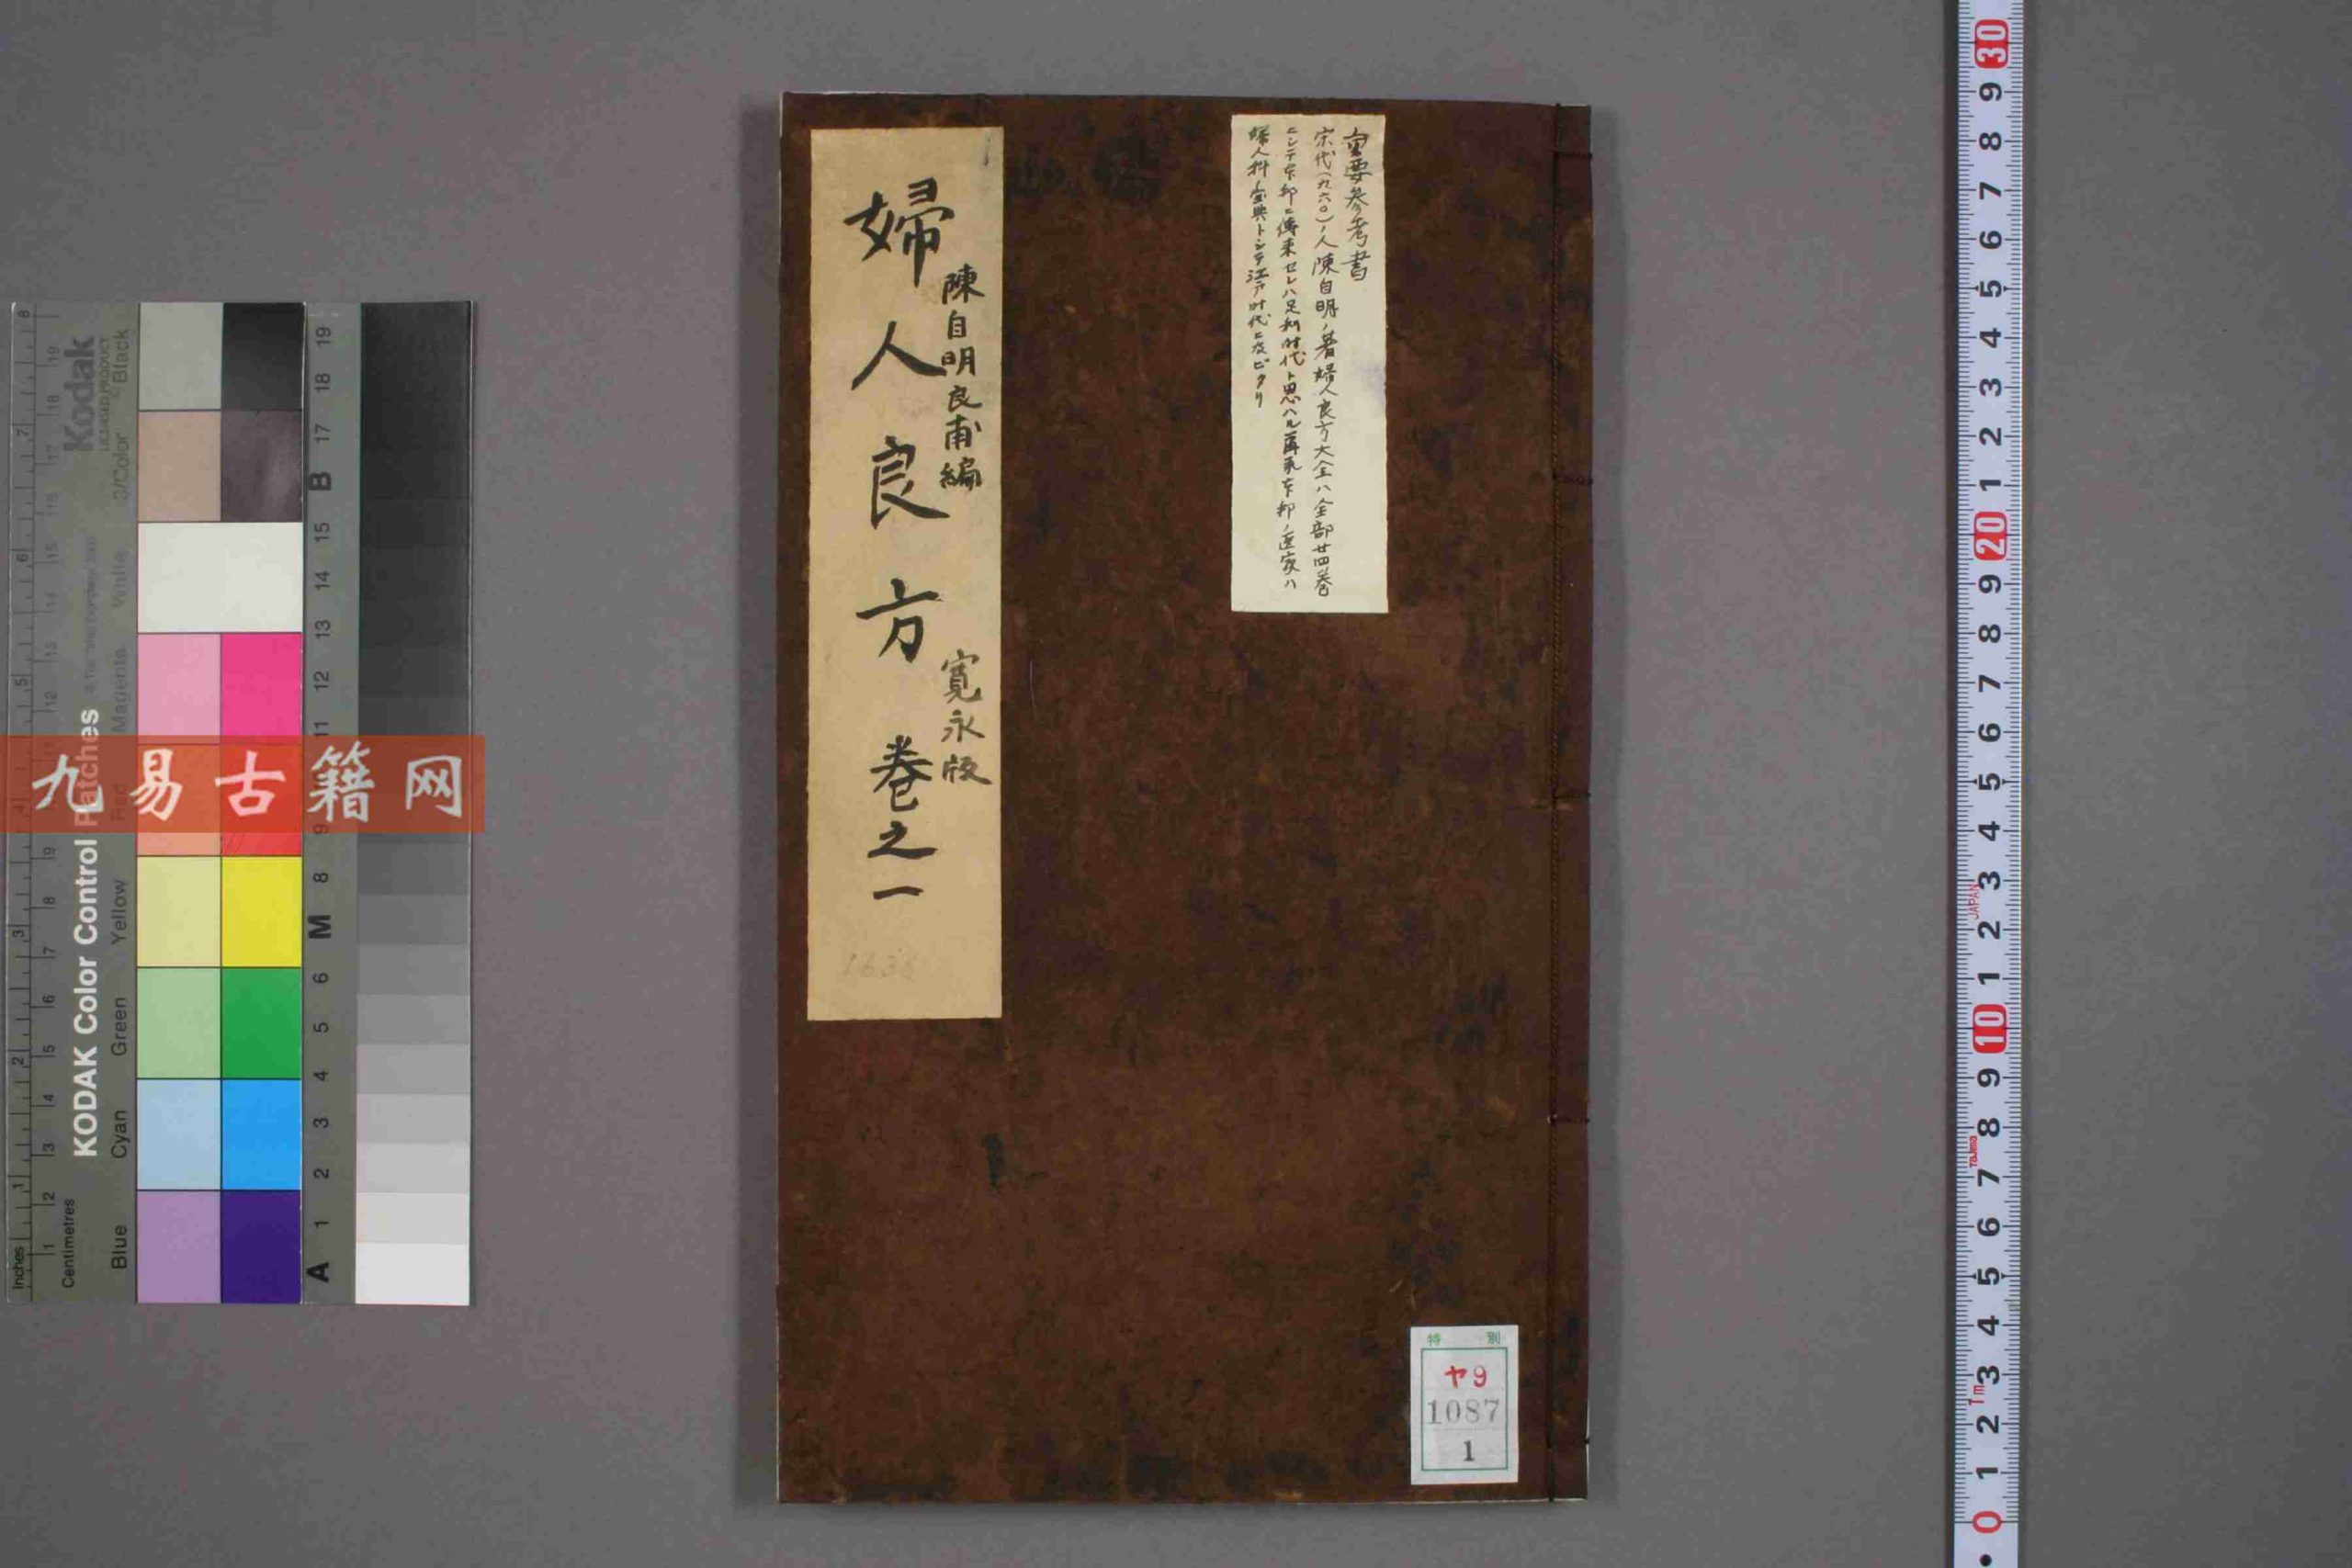 重要参考書
宋代(九六〇)ノ人陳自明ノ著婦人良方大全ハ全部廿四巻
ニシテ本邦ニ傳来セレハ足利時代ト思ハル爾来本邦ノ医家ハ
婦人科ノ宝典トシテ江戸时代ニ及ビタリ
陳自明良甫編
寛永版
婦人良方 巻之一
1638
特別
ヤ9
1087
1
九易古籍网
Kodak
LICENSED PRODUCT
KODAK Color Control Patches
Inches
Centimetres
Blue
Cyan
Green
Yellow
Red
Magenta
White
3/Color
Black
A 1 2 3 4 5 6 M 8 9 11 12 13 14 15 B 17 18 19
JAPAN
Tajima
Tm
0 1 2 3 4 5 6 7 8 9 10 1 2 3 4 5 6 7 8 9 20 1 2 3 4 5 6 7 8 9 30